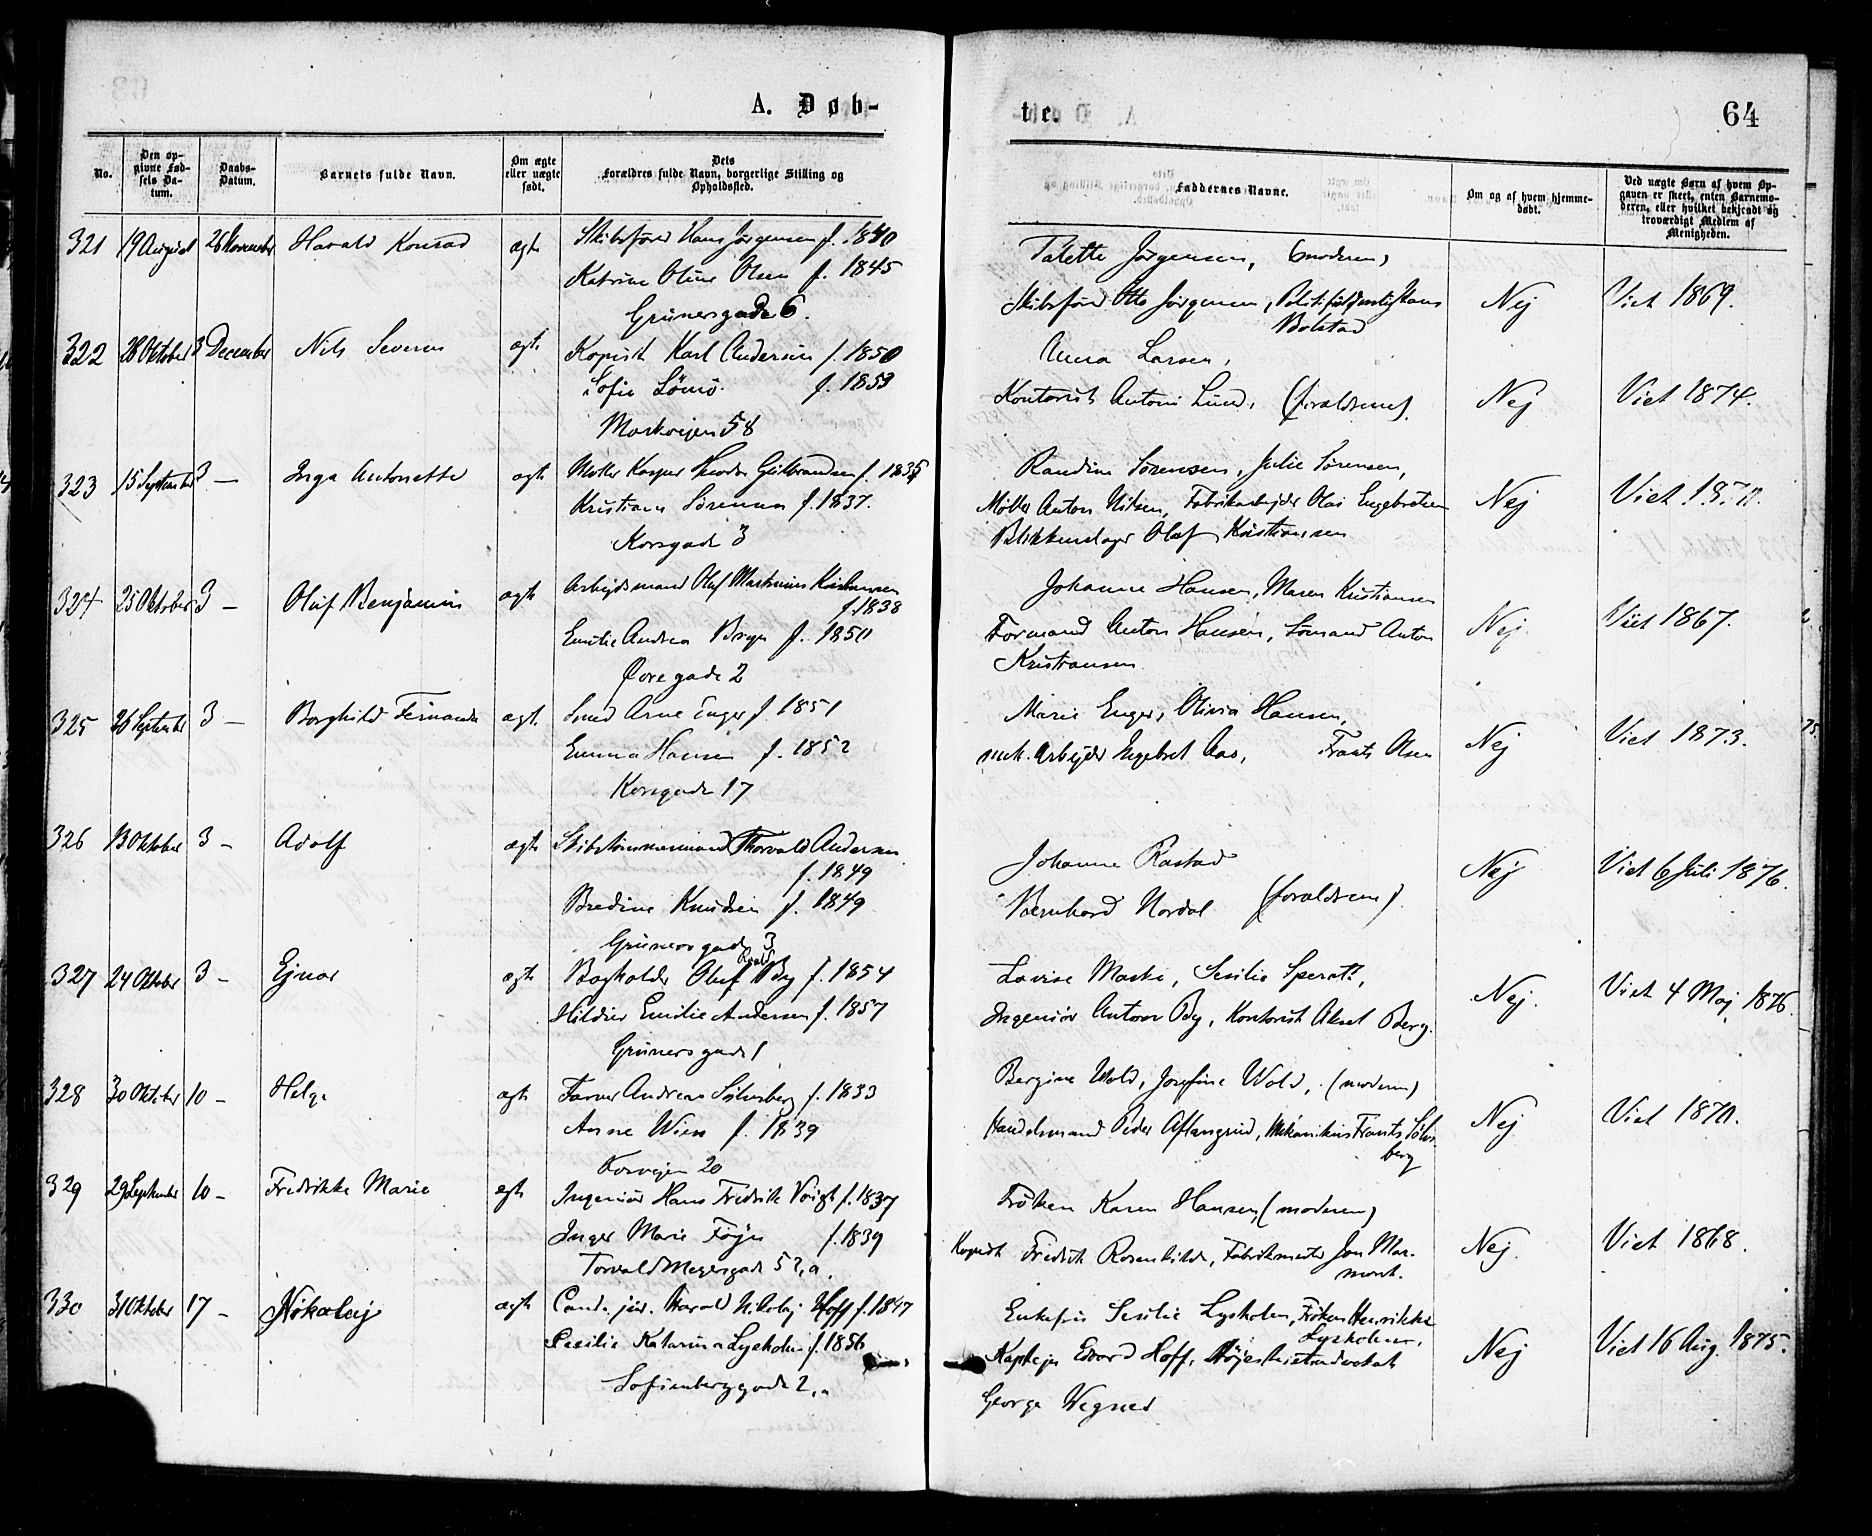 A. Døb-
te.
64
No.
Den op-
givne Fød-
sels Da-
tum.
Daabs-
Datum.
Barnets fulde Navn.
Om ægte
eller uægte
født.
Dets
Forældres fulde Navn, borgerlige Stilling og
Opholdssted.
Faddernes Navne.
Om og af hvem hjemme-
døbt.
Ved uægte Børn af hvem Op-
gaven er skeet, enten Barnemo-
deren, eller hvilket bekjendt og
troværdigt Medlem af
Menigheden.
321 19 August 26 November Harald Konrad ægte Skibsfører Hans Jørgensen f. 1840
Katrine Oline Olsen f. 1845
Grünersgade 6.
Talette Jørgensen, (moderen)
Skibsfører Otto Jørgensen, Hans
Bolstad
Nej
Viet 1869.
322 28 Oktober 3 December Nils Severin ægte Kopist Karl Andersen f. 1850
Sofie Lömo f. 1853
Markveien 58
Anna Larsen,
Kontorist Antoni Lund, (forældrene).
Nej
Viet 1874.
323 15 September 3 — Inga Antonette ægte Møller Kasper Theodor Gulbrandsen f. 1835
Kristiane Sörensen f. 1837.
Korsgade 3
Randine Sörensen, Julie Sörensen,
Møller Anton Nilsen, Fabrikarbejder Olai Engebretsen
Blikkenslager Olaf Kristiansen
Nej
Viet 1870.
324 25 Oktober 3 — Oluf Benjamin ægte Arbejdsmand Oluf Martinius Kristiansen
f. 1838
Emilie Andrea f. 1850
Øvregade 2
Johanne Hansen, Maren Kristiansen
Formand Anton Hansen, Sömand Anton
Kristiansen
Nej.
Viet 1867.
325 26 September 3 — Borghild Fernanda ægt. Smed Arne Enger f. 1851
Emma Hansen f. 1852
Korsgade 17
Marie Enger, Olivia Hansen,
mek. Arbejder Engebret Aas, Frants Olsen
Nej
Viet 1873.
326 13 Oktober 3 — Adolf ægte Skibstömmermand Thorvald Andersen
f. 1849
Bredine Knudsen f. 1849
Grünersgade 3
Johanne Rastad
Bernhard Nordal (forældrene).
Nej
Viet 6 Juli 1876.
327 24 Oktober 3 — Ejnar ægte Bogholder Oluf By f. 1854
Emilie Andersen f. 1857
Grünersgade 1
Lovise Maske, Sesilie Speratt,
Ingeniör Antoor By, Kontorist Aksel Berg.
Nej.
Viet 4 Maj 1876.
328 30 Oktober 10 — Helga ægte Farver Andreas Sölvsberg f. 1833
Anne Wien f. 1839
20
Bergine Wold, Josefine Wold, (moderen)
Handelsmand Peder Aflangrud, Mekanikus Frants Sölvs-
berg
Nej
Viet 1870.
329 29 September 10 — Fredrikke Marie ægte Ingeniör Hans Fredrik Voigt f. 1837
Inger Marie Föyn f. 1839
Torvald Meyersgade 52, a.
Fröken Karen Hansen, (moderen)
Kopist Fredrik Rosenkilde, Fabrikmester Jon Mar-
mont.
Nej.
Viet 1868.
330 31 Oktober 17 — Nikolaj ægte Cand. jur. Harald Nikolaj Hoff f. 1847
Sesilie Katarina Lysholm f. 1856
Sofienberggade 2, a
Enkefru Sesilie Lysholm, Fröken Henrikke
Lysholm,
Kaptejn Edvard Hoff, Höjesteretsadvokat
George Wegner
Nej
Viet 16 Aug. 1875.